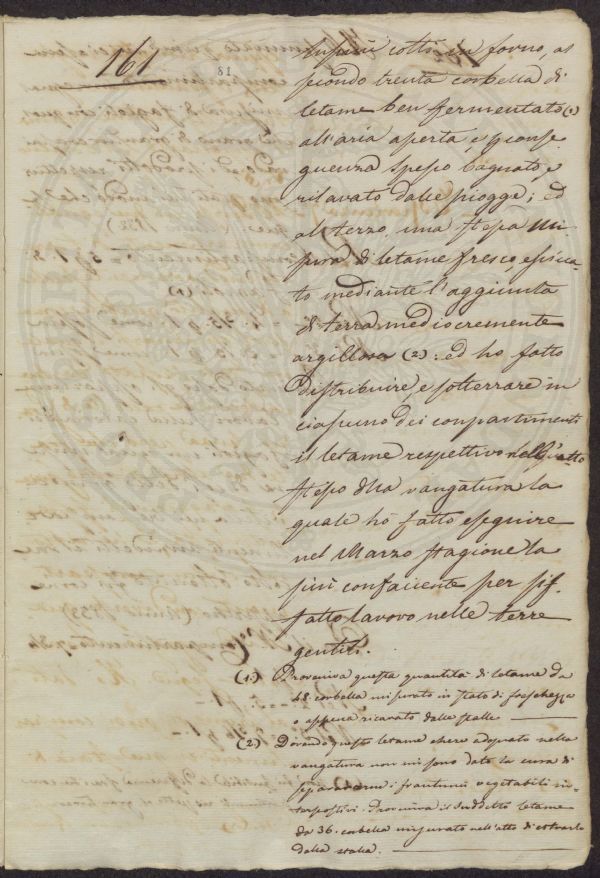 161
81
lupini cotti in forno, al
secondo trenta corbella di
letame ben fermentato (1)
all'aria aperta, e conse
guenza spesso bagnato, e
rilavato dalle piogge; ed
al terzo, una stessa mi
sura di letame fresco, essicca-
to mediante l'aggiunta
di terra mediocremente
argillosa (2): ed ho fatto
distribuire, e sotterrare in
ciascuno dei conpartimenti
il letame respettivo nell'atto
stesso della vangatura la
quale hò fatto eseguire
nel Marzo stagione la
più confaciente per sif-
fatto lavoro nelle terre
gentili.
(1) Proveniva questa quantità di letame da
48 corbella misurato in stato di freschezza
o appena ricavato dalle stalle
(2) Dovendo questo letame essere adoprato nella
vangatura non mi sono dato la cura di
separarne i frantumi vegetabili in-
terpostivi. Proveniva il suddetto letame
da 36. corbella misurato nell'atto di estrarlo
dalla stalla.